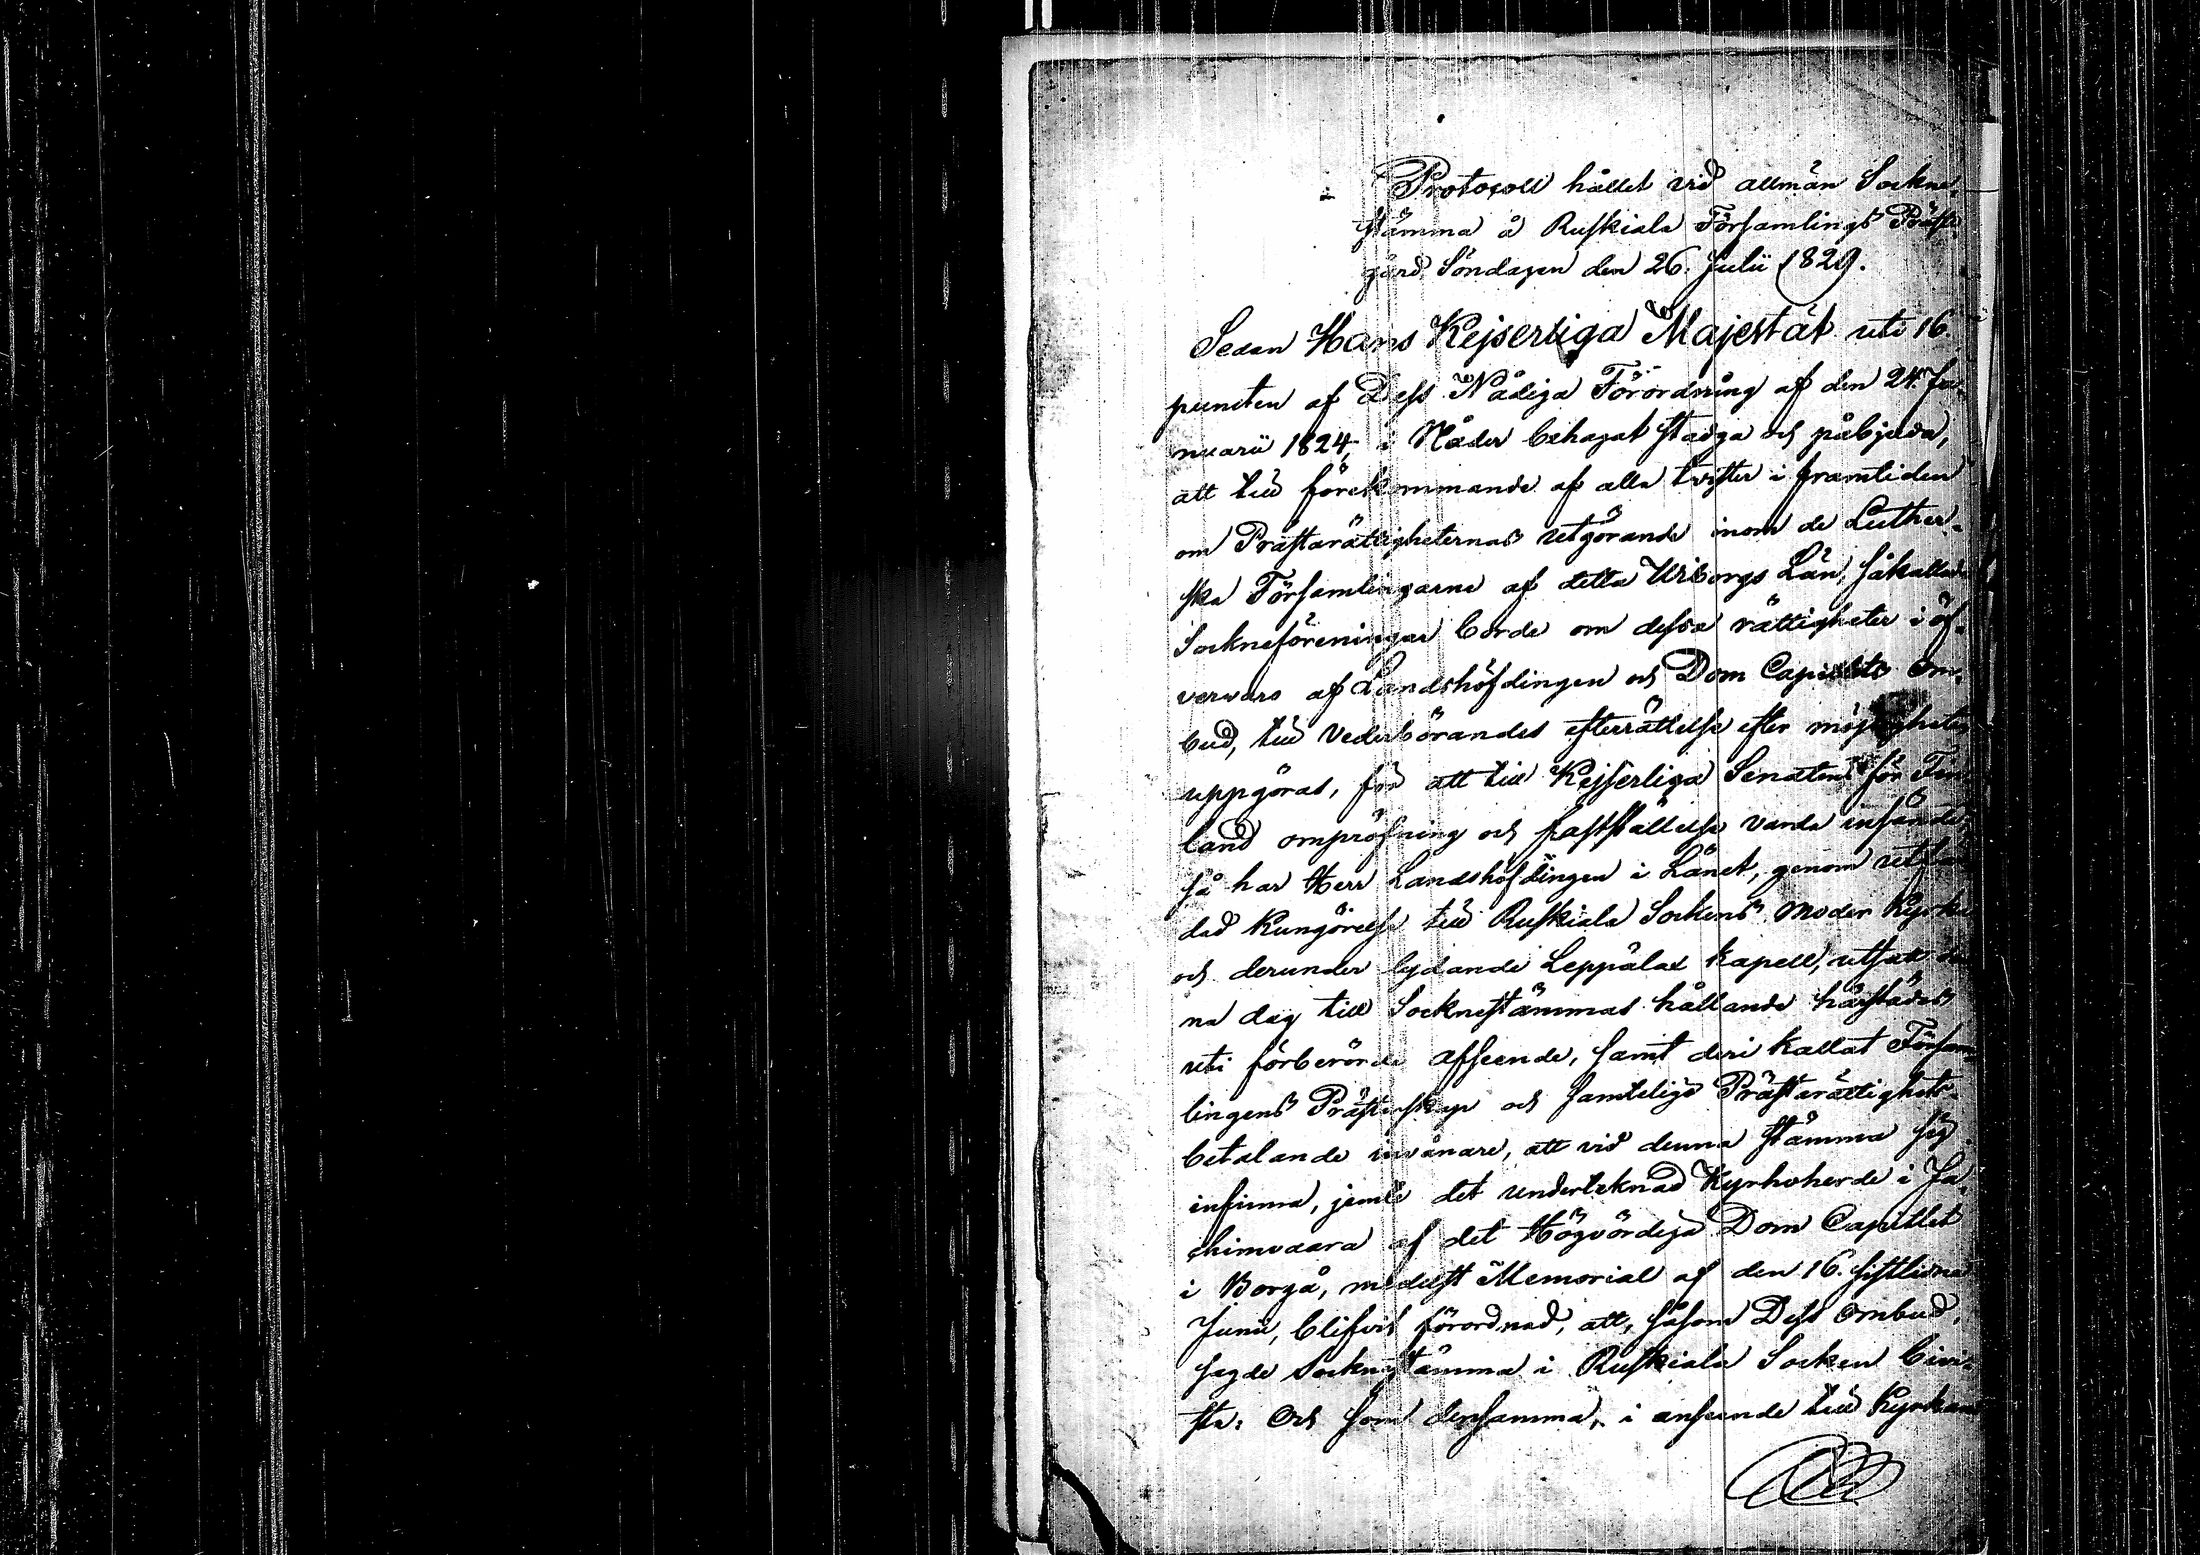 Protocoll hållet vid allmän Sockne-
stämma å Ruskiala Församlings Präste-
gård, Söndagen den 26. Julii 1829.
Sedan Hans Kejserliga Majestät uti 16.
puncten af Dess Nådiga Förordning af den 24. Ja-
nuarii 1824, i Nåder behagat stadga och påbjuda,
att till förekommande af alla tvister i framtiden
om Prästarättigheternas utgörande inom de Luther-
ska Församlingarne af detta Wiborgs Län, såkallade
Sockneföreningar borde om dessa rättigheter i öf-
vervaro af Landshöfdingen och Dom Capitlets Om-
bud, till Vederbörandes efterrättelse efter möjligheten
uppgöras, för att till Kejserliga Senaten för Fin-
land ompröfning och fastställelse varda insände,
så har Herr Landshöfdingen i Länet, genom utfär-
dad Kungörelse till Ruskiala Sockens Moder Kyrka
och derunder lydande Leppälax Kapell, utsatt den-
na dag till Socknestämmas hållande härstädes
uti förberörde afseende, samt deri kallat Försam-
lingens Prästerskap och samtelige Prästarättighets-
betalande invånare, att vid denna stämma sig
infinna, jemte det undertecknad Kyrkoherde i Ja-
chimvaara af det Högvördiga Dom Capitlet
i Borgå, medelst Memorial af den 16. sistledne
Junii, blifvit förordnad, att, såsom Dess Ombud,
sagde Socknestämma i Ruskiala Socken bivi-
sta: Och som densamma, i anseende till Kyrkans